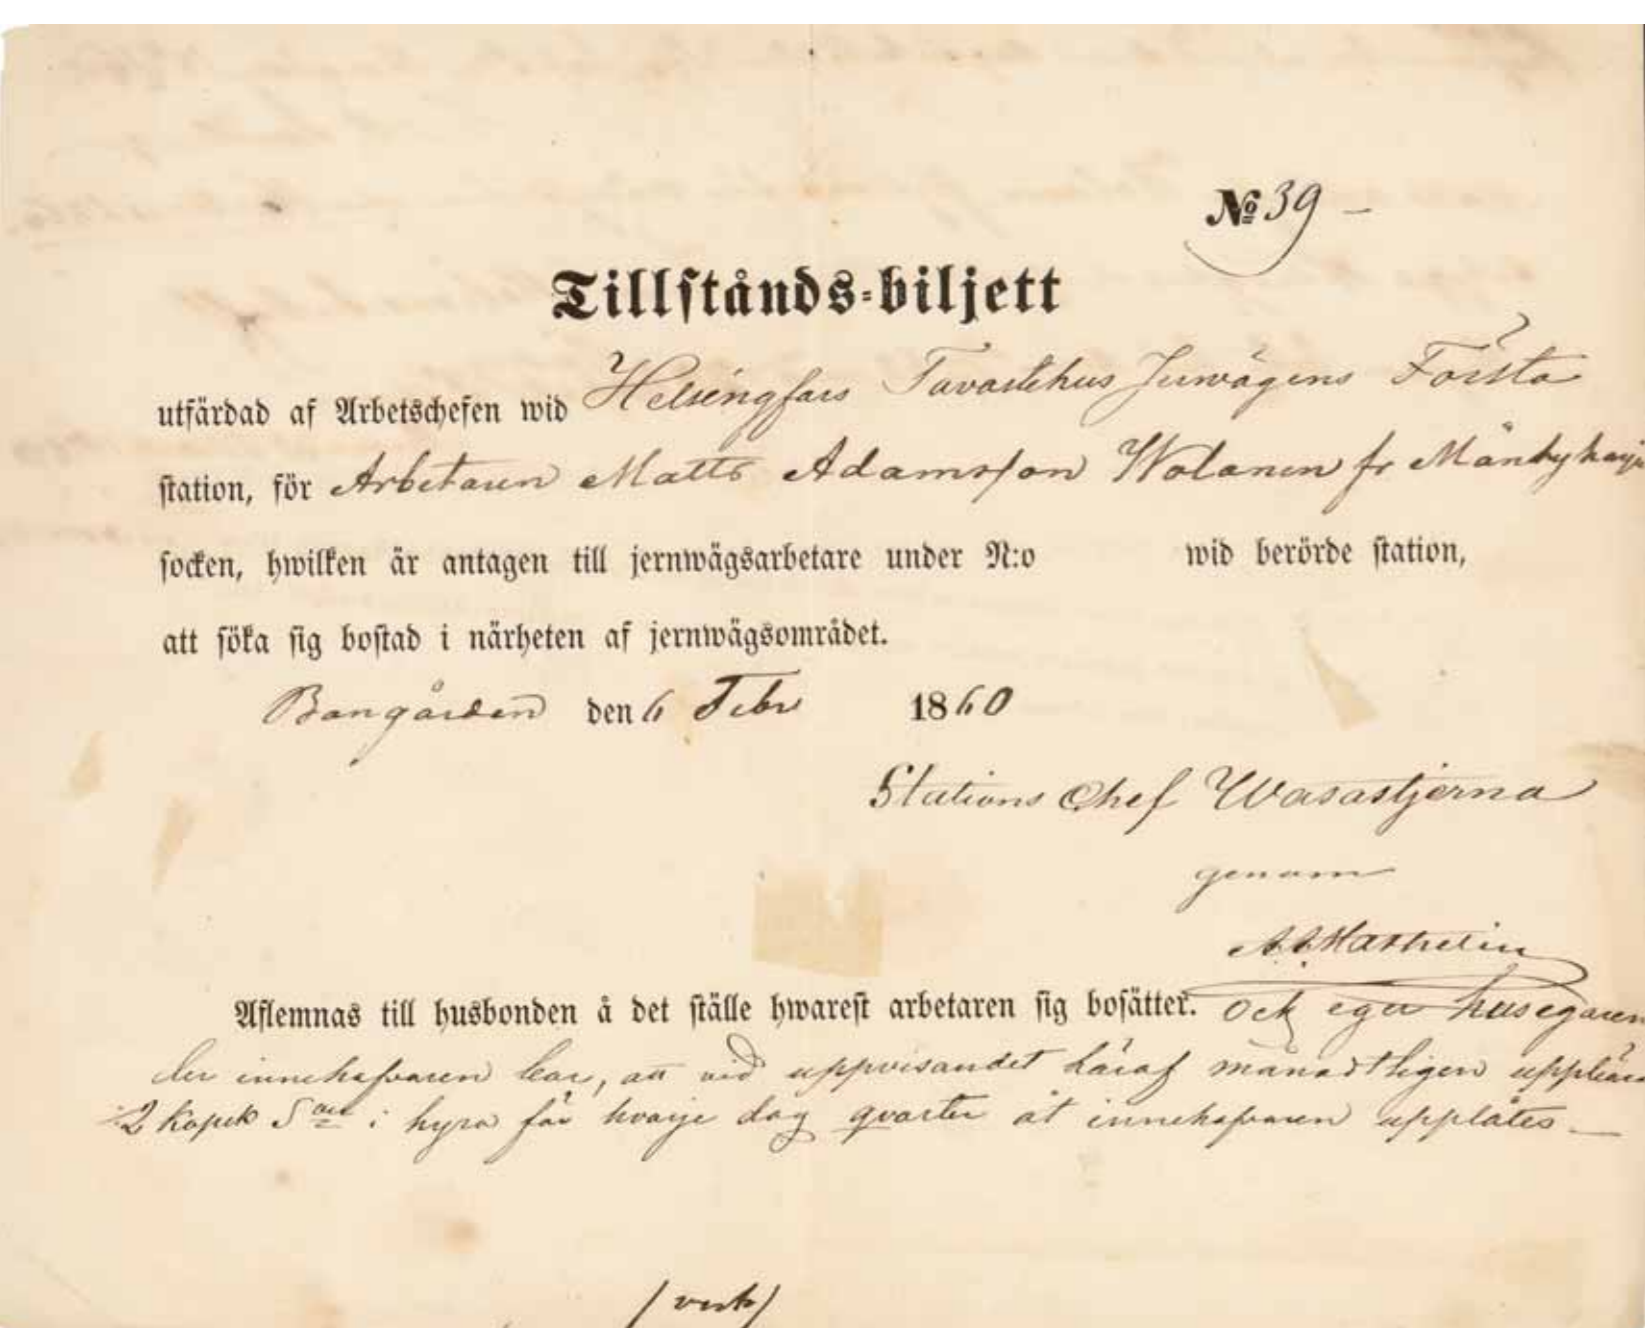 № 39 –
Tillstånds-biljett
utfärdad af Arbetschefen wid Helsingfors Tavastehus Jernvägens Första
station, för Arbetaren Matts Adamsson Wolanen fr Mäntyharju
socken, hwilken är antagen till jernwägsarbetare under N:o wid berörde station,
att söka sig bostad i närheten af jernwägsområdet.
Bangården den 6 Febr 1860
Stations Chef Wasastjerna
genom
Aflemnas till husbonden å det ställe hwarest arbetaren sig bosätter. Och eger husegaren
der innehafvaren bor, att vid uppvisandet häraf månadtligen uppbära
2 kopek S i hyra för hvarje dag qvarter åt innehafvaren upplåtes —